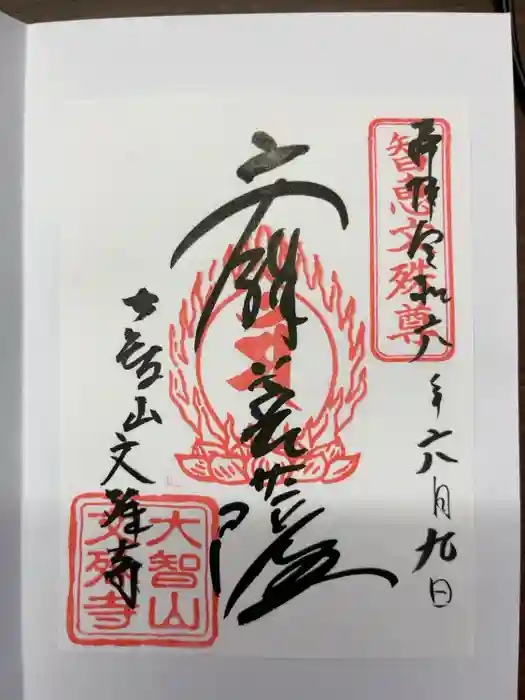 智恵文殊尊
奉拝 令和六年六月九日
文殊菩薩
大智山文殊寺
大智山
文殊寺